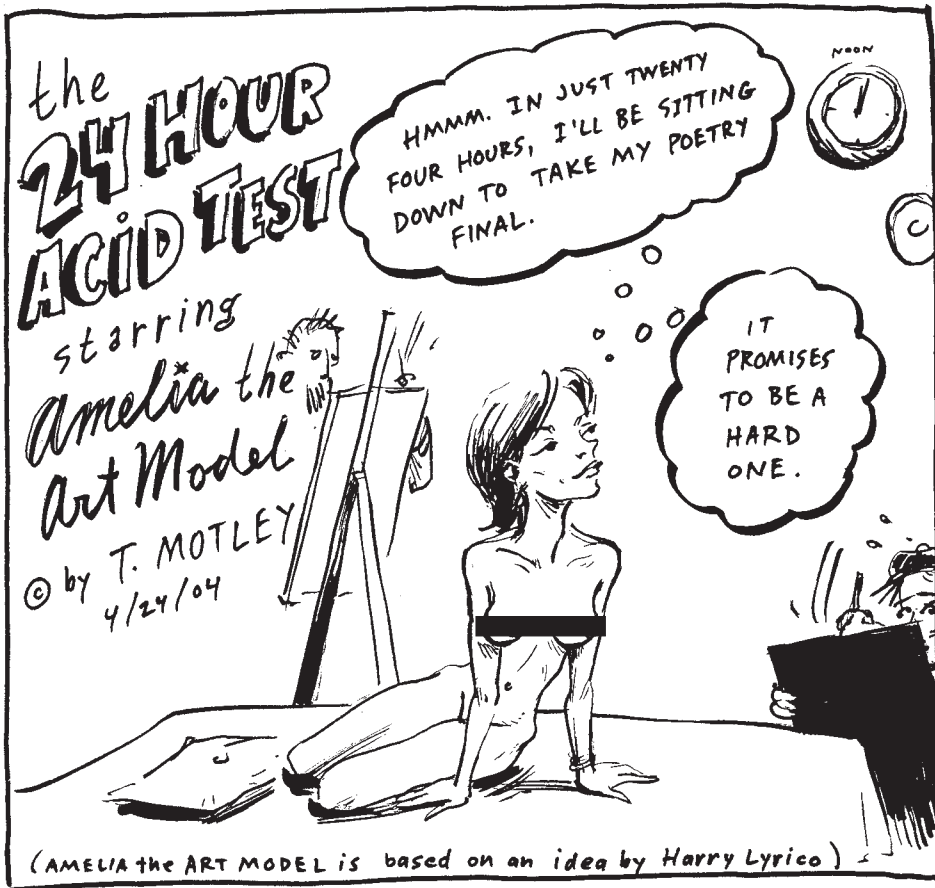 the
24 HOUR
ACiD TEST
starring
Amelia the
Art Model
© by T. MOTLEY
4/24/04
HMMM. IN JUST TWENTY
FOUR HOURS, I'LL BE SITTING
DOWN TO TAKE MY POETRY
FINAL.
NOON
IT
PROMISES
TO BE A
HARD
ONE.
(AMELIA the ART MODEL is based on an idea by Harry Lyrico)